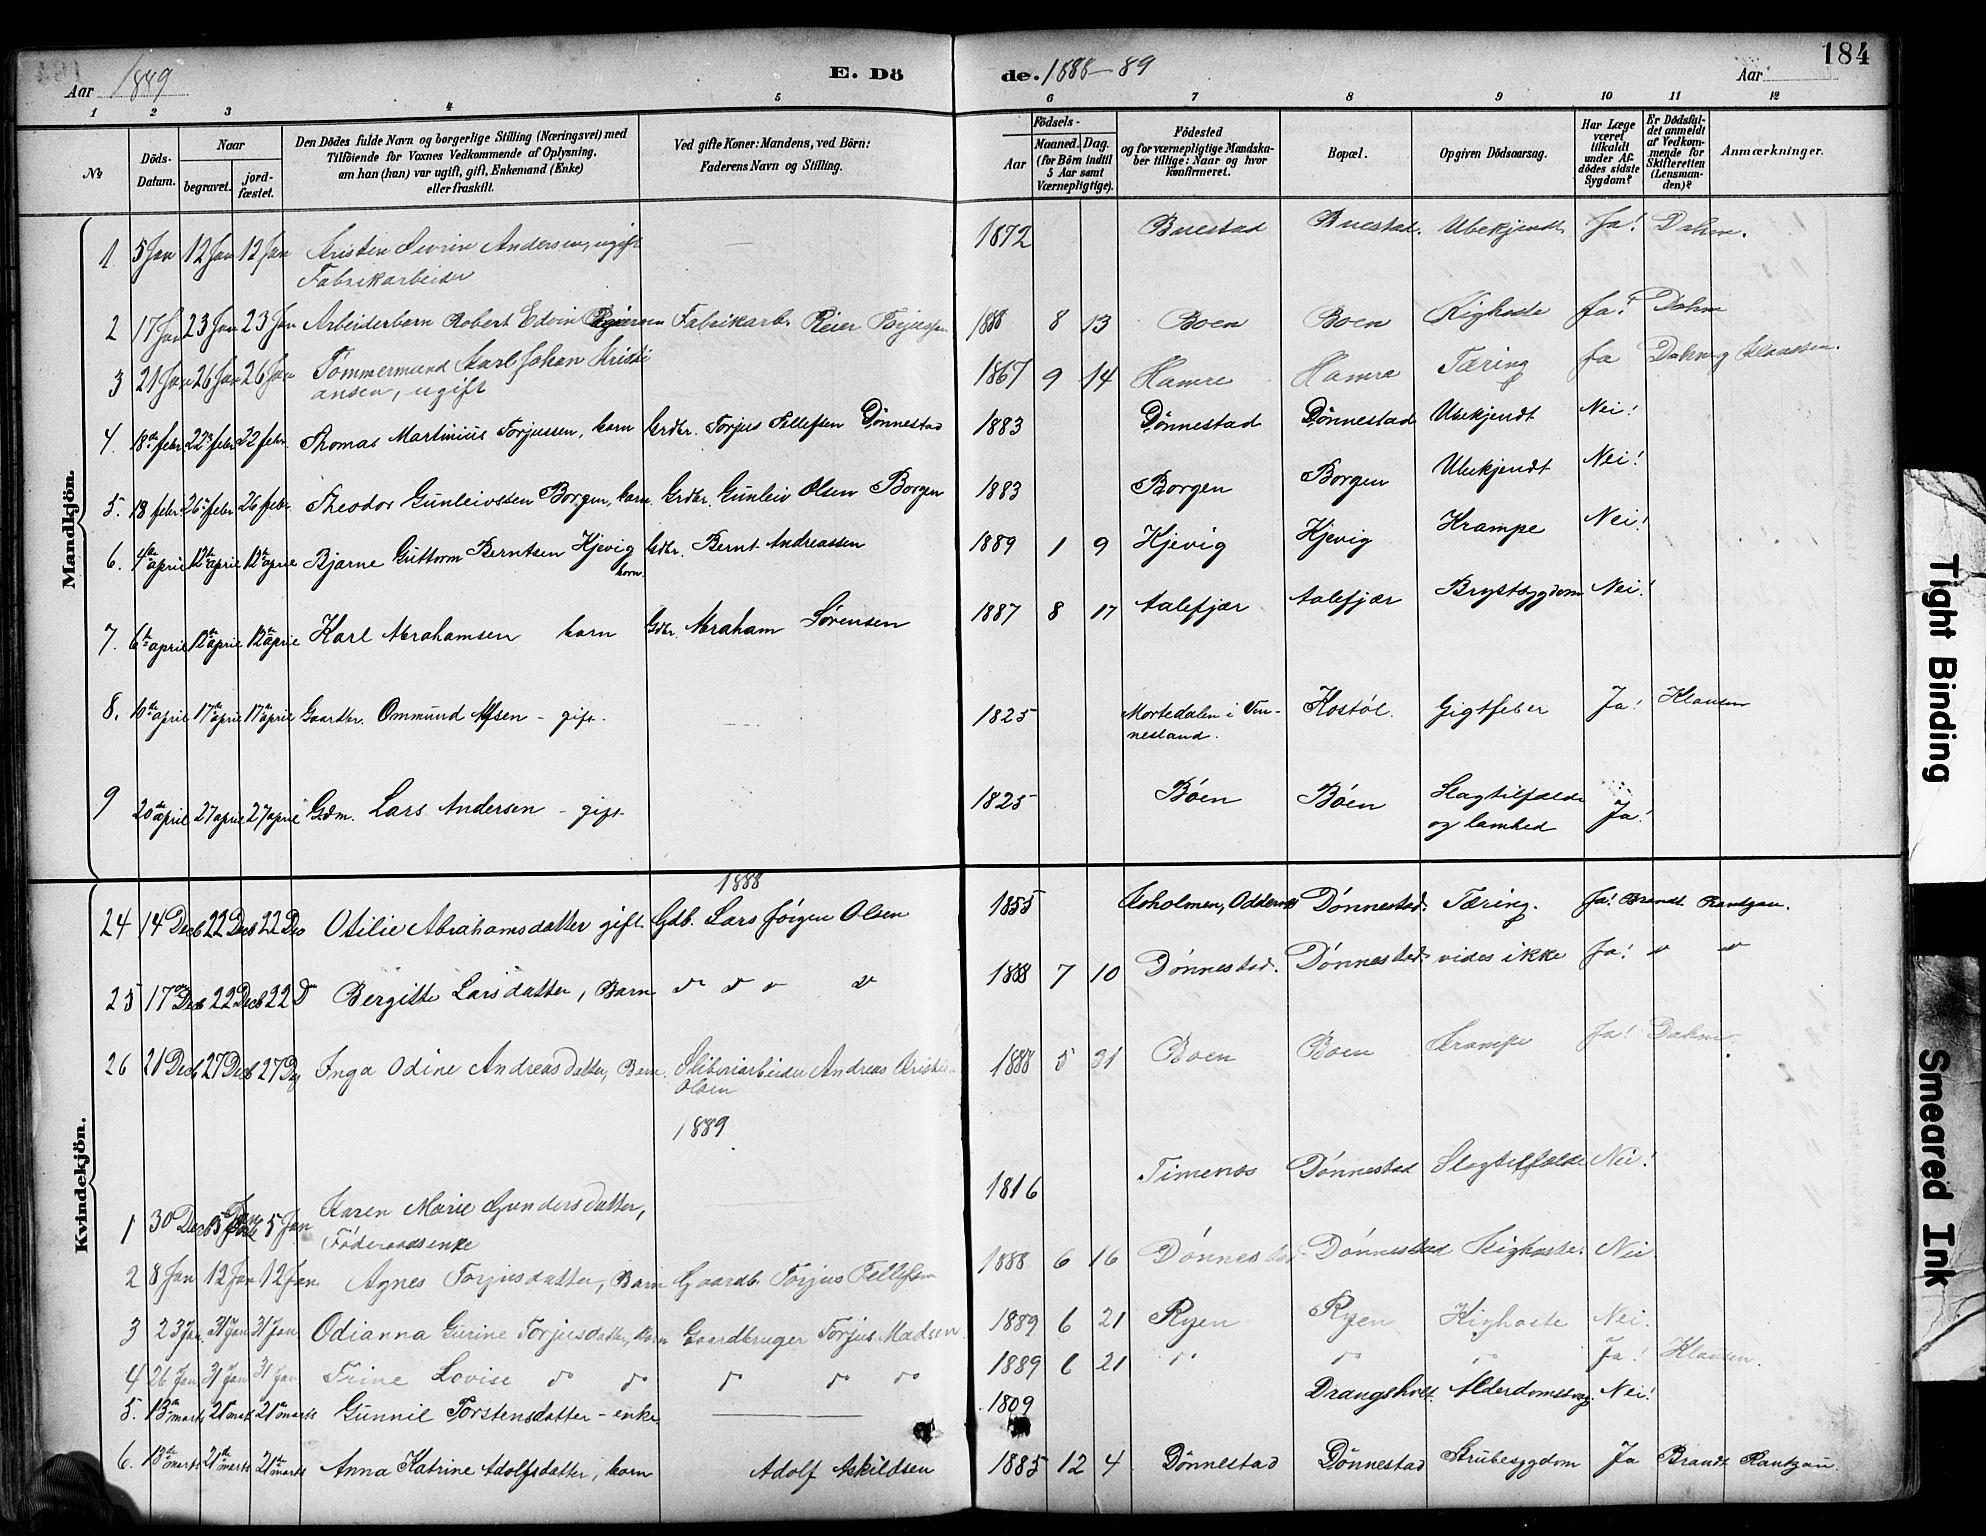 184
Aar 1889 E. Dö de. 1888-89 Aar
1 2 3 4 5 6 7 8 9 10 11 12
No
Döds-Datum.
Naar
begravet.
jord-fæstet.
Den Dödes fulde Navn og borgerlige Stilling (Næringsvei) med
Tilföiende for Voxnes Vedkommende af Oplysning,
om han (hun) var ugift, gift, Enkemand (Enke)
eller fraskilt.
Ved gifte Koner: Mandens, ved Börn:
Faderens Navn og Stilling.
Födsels-
Aar
Maaned. Dag.
(for Börn indtil
5 Aar samt
Værnepligtige).
Födested
og for værnepligtige Mandska-
ber tillige: Naar og hvor
konfirmeret.
Bopæl.
Opgiven Dödsaarsag.
Har Læge
været
tilkaldt
under Af-
dödes sidste
Sygdom?
Er Dödsfal-
det anmeldt
af Vedkom-
mende for
Skifteretten
(Lensman-
den)?
Anmærkninger.
Mandkjön.
1 5 Jan 12 Jan 12 Jan Kristen Severin Andersen, ugift — 1872 Buestad Buestad. Ubekjendt Ja! Dahm.
Fabrikarbeider
2 17 Jan 23 Jan 23 Jan Arbeiderbarn Robert Edvin Reiersen Fabrikarb. Reier Torjussen 1888 8 13 Boen Boen Kighoste Ja! Dahm
3 21 Jan 26 Jan 26 Jan Tømmermand Karl Johan Kristi 1867 9 14 Hamre Hamre Tæring Ja Dahm og Klaussen.
ansen, ugift
4. 18de febr 22de febr 22 febr. Thomas Martinius Torjussen, barn Grdbr. Torjus Tellefsen Dønnestad 1883 Dønnestad Dønnestad Ubekjendt Nei!
5. 18 febr 26 febr 26 febr. Theodor Gunleivssen Borgen, barn. Grdbr. Gunleiv Olsen Borgen 1883 Borgen Borgen Ubekjendt Nei!
6. 4de april 12te april 12te april Bjarne Guttorm Berntsen Kjevig Gdbr. Bernt Andreassen 1889 1 9 Kjevig Kjevig Krampe Nei!
barn.
7. 6te april 12te april 12te april Karl Abrahamsen barn Gdbr. Abraham Sørensen 1887 8 17 Aalefjær Aalefjær Brystsygdom Nei!
8. 10de april 17de april 17de april Gaardbr. Ommund Alfsen – gift. — 1825 Mortedalen i Ven- Kostøl. Gigtfeber Ja! Klausen
nesland.
9 20de april 27 april 27 april Gdm. Lars Andersen – gift. 1825 Bøen Bøen Slagtilfælde Ja!
og lamhed
Kvindekjön.
1888
24 14 Decb 22 Decb 22 Dec Otilie Abrahamsdatter gift. Gdb. Lars Jørgen Olsen 1855 Oddernes Dønnestad. Tæring. Ja! Brandt Rantzau.
25 17de Decb 22 Decb 22 D Bergitte Larsdatter, Barn " " " " 1888 7 10 Dønnestad. Dønnestad. vides ikke Ja! " "
26 21 Decb 27 Decb 27 Dec Inga Odine Andreas Datter, Barn. Sliberiarbeider Andreas Kristian 1888 5 31 Boen Boen Krampe Ja! Dahm.
Olsen
1889
1 30 Decb 5 Jan 5 Jan Karen Marie Gunders Datter, 1816 Timenes Dønnestad Slagtilfælde Nei!
Føderaadsenke
2 8 Jan 12 Jan 12 Jan Agnes Torjusdatter, Barn Gaardb. Torjus Tellefsen 1888 6 16 Dønnestad Dønnestad Kighoste. Nei
3 23 Jan. 31 Jan 31 Jan. Odianna Gurine Torjusdatter, barn Gaardbruger Torjus Madsen. 1889 6 21 Ryen Ryen Kighoste Nei.
4 26 Jan 31 Jan 31 Jan Trine Lovise " " " " " 1889 6 21 " " " Ja! Klausen.
5. 13de marts 21de marts 21de marts Gunnil Torstensdatter – enke — 1809 Drangsholt Alderdomssvag. Nei!
6. 13de marts 21de marts 21de marts Anna Katrine Adolfsdatter, barn Adolf Askildsen 1885 12 4 Dønnestad Dønnestad Strubesygdom Ja Brandt Rantzau.
Tight Binding
Smeared Ink